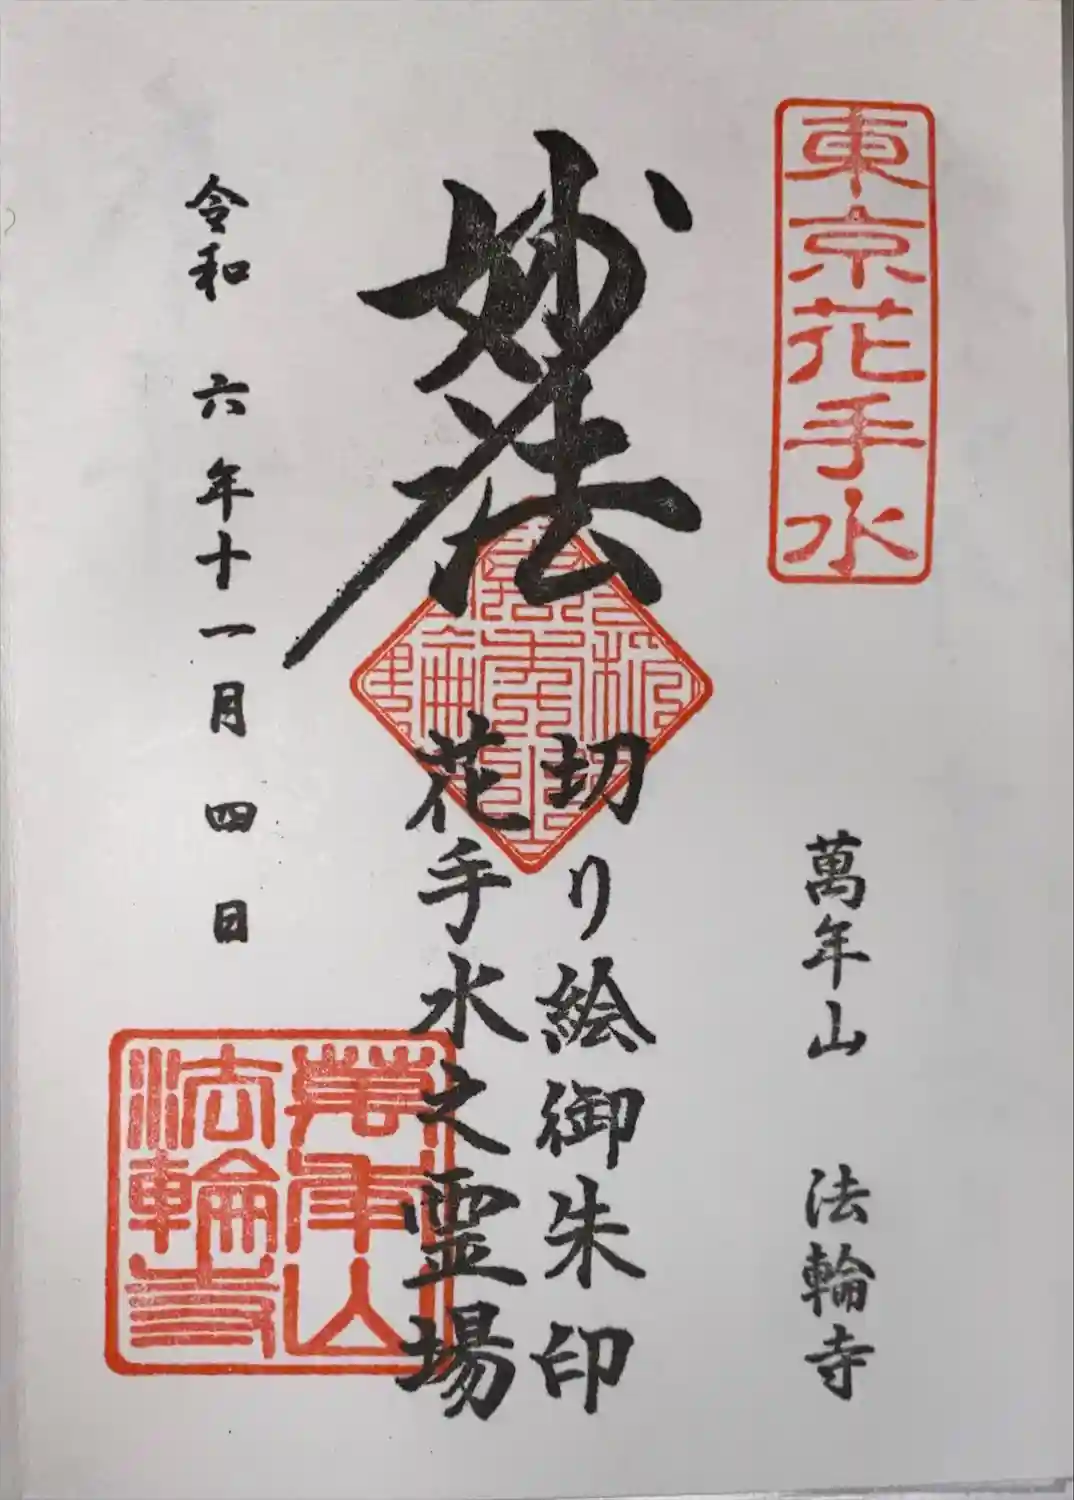 東京花手水
萬年山 法輪寺
妙法
切り絵御朱印
花手水之霊場
令和 六年十一月 四 日
萬年山
法輪寺